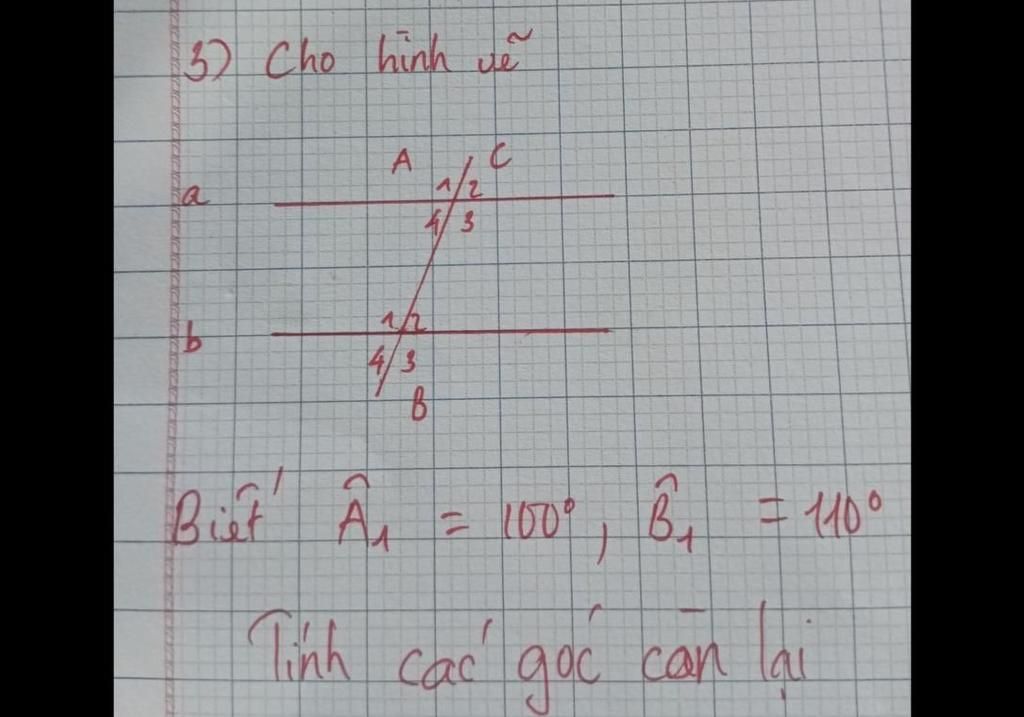 3) Cho hình vẽ
A C
1 2
a
4 3
1 2
b
4 3
B
Biết Â₁ = 100°, B̂₁ = 110°
Tính các góc còn lại